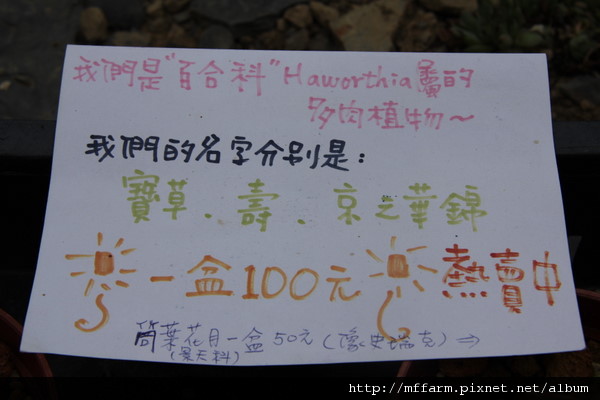 我們是"百合科" Haworthia屬的
多肉植物~
我們的名字分別是:
寶草、壽、京之華錦
一盒100元 熱賣中
筒葉花月一盒50元(像史瑞克)⇒
(景天科)
http://mffarm.pixnet.net/album